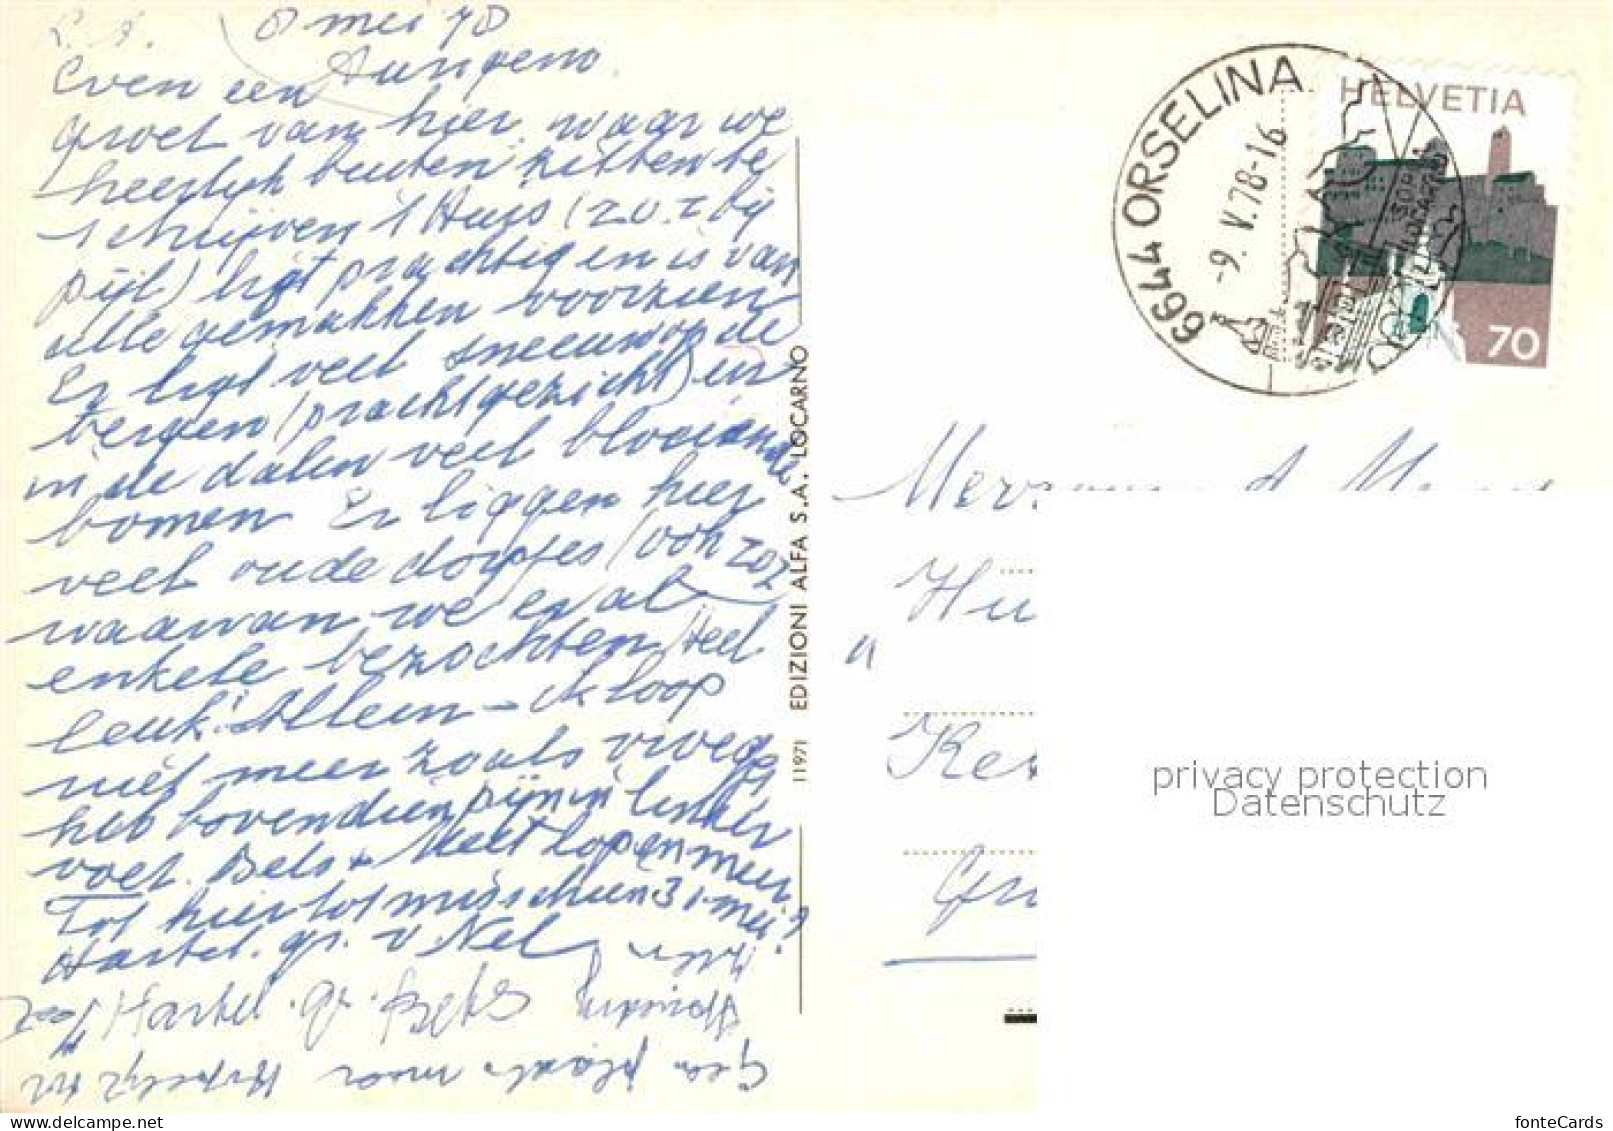 8 mei 78
Even een
groet van hier, waar we
heerlijk buiten zitten te
schrijven 't Huis (z.o.z bij
pijl) ligt prachtig en is van
alle gemakken voorzien
Er ligt veel sneeuw op de
bergen (prachtgezicht) en
in de dalen veel bloeiende
bomen Er liggen hier
veel oude dorpjes (ook zoz
waarvan we er al
enkele bezochten, Heel
leuk! Alleen – ik loop
niet meer zoals vroeger
heb bovendien pijn in linker
voet. Bels + Meet lopen meer
Tot hier tot misschien 31 mei?
Hartel. gr. v Nel
Hartel.
Geen plaats meer
11971 EDIZIONI ALFA S.A. LOCARNO
6644 ORSELINA
-9.V.78-16
HELVETIA
70
Hu
Ke
privacy protection
Datenschutz
fonteCards